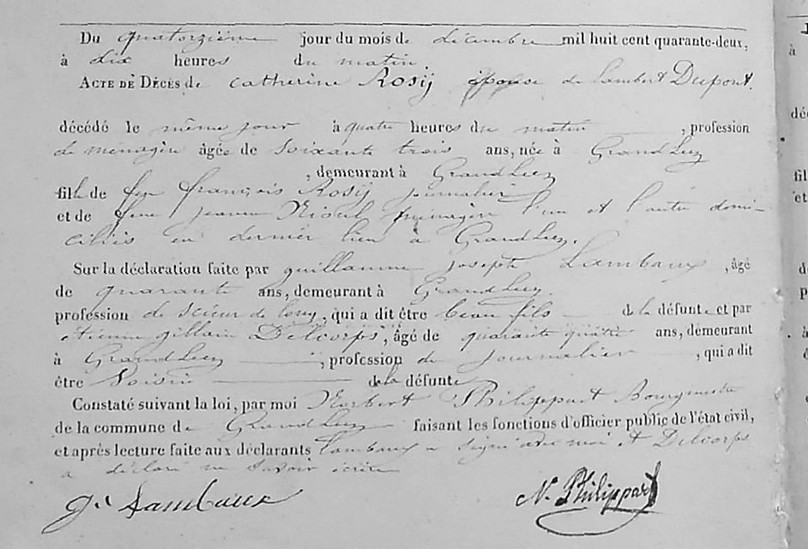 Du quatorzième jour du mois de décembre mil huit cent quarante-deux,
à dix heures du matin
ACTE DE DÉCÈS de Catherine Rosij épouse de Lambert Dupont.
décédé le même jour à quatre heures du matin , profession
de ménagère âgée de soixante trois ans, née à GrandLeez
, demeurant à GrandLeez
fille de feu françois Rosij journalier
et de feue jeanne ménagère l'un et l'autre domi-
ciliés en dernier lieu à GrandLeez.
Sur la déclaration faite par guillaume joseph Lambaux , âgé
de quarante ans, demeurant à GrandLeez
profession de scieur de long, qui a dit être beau fils de la défunte et par
etienne gillain Delcorps, âgé de quarante quatre ans, demeurant
à GrandLeez , profession de journalier , qui a dit
être Voisin de la défunte
Constaté suivant la loi, par moi Norbert Philippart Bourgmestre
de la commune de GrandLeez faisant les fonctions d'officier public de l'état civil,
et après lecture faite aux déclarants Lambaux a signé avec moi et Delcorps
a déclaré ne savoir écrire
gj Lambaux
N. Philippart